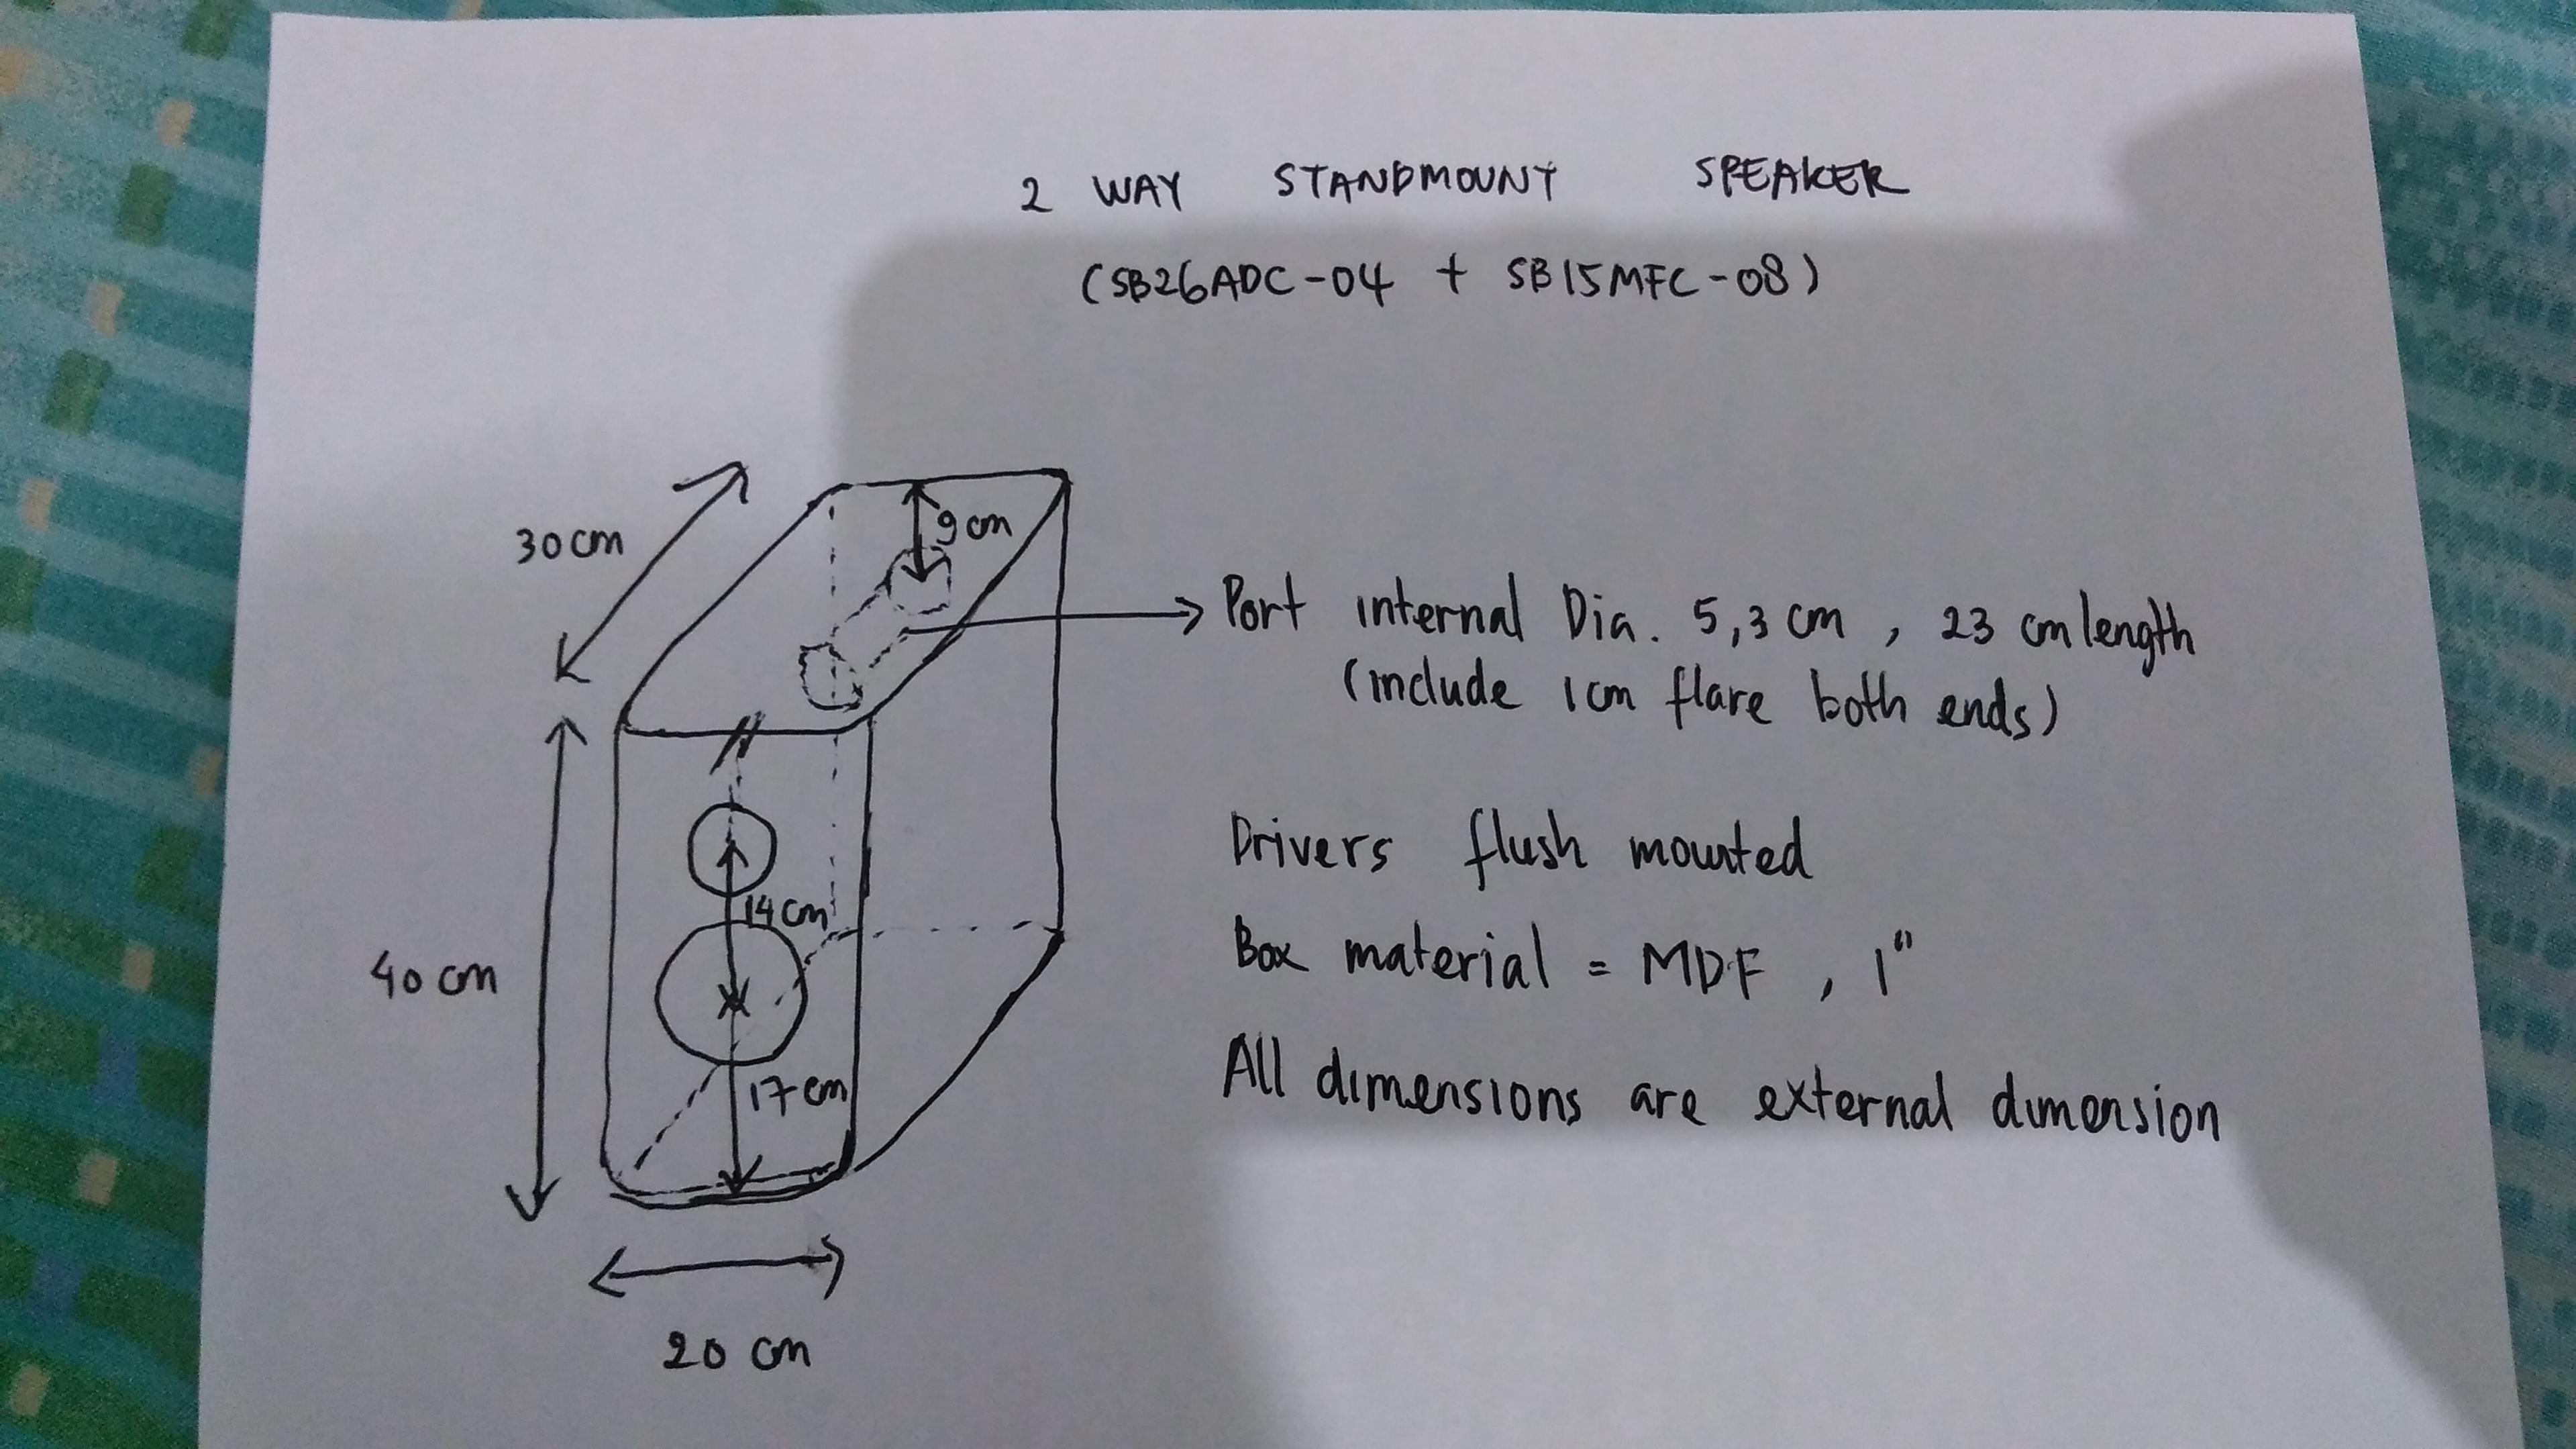 2 WAY STANDMOUNT SPEAKER
(SB26ADC-04 + SB15MFC-08)
30 cm
9 cm
Port internal Dia. 5,3 cm, 23 cm length
(include 1 cm flare both ends)
Drivers flush mounted
14 cm
Box material = MDF, 1"
40 cm
17 cm
All dimensions are external dimension
20 cm